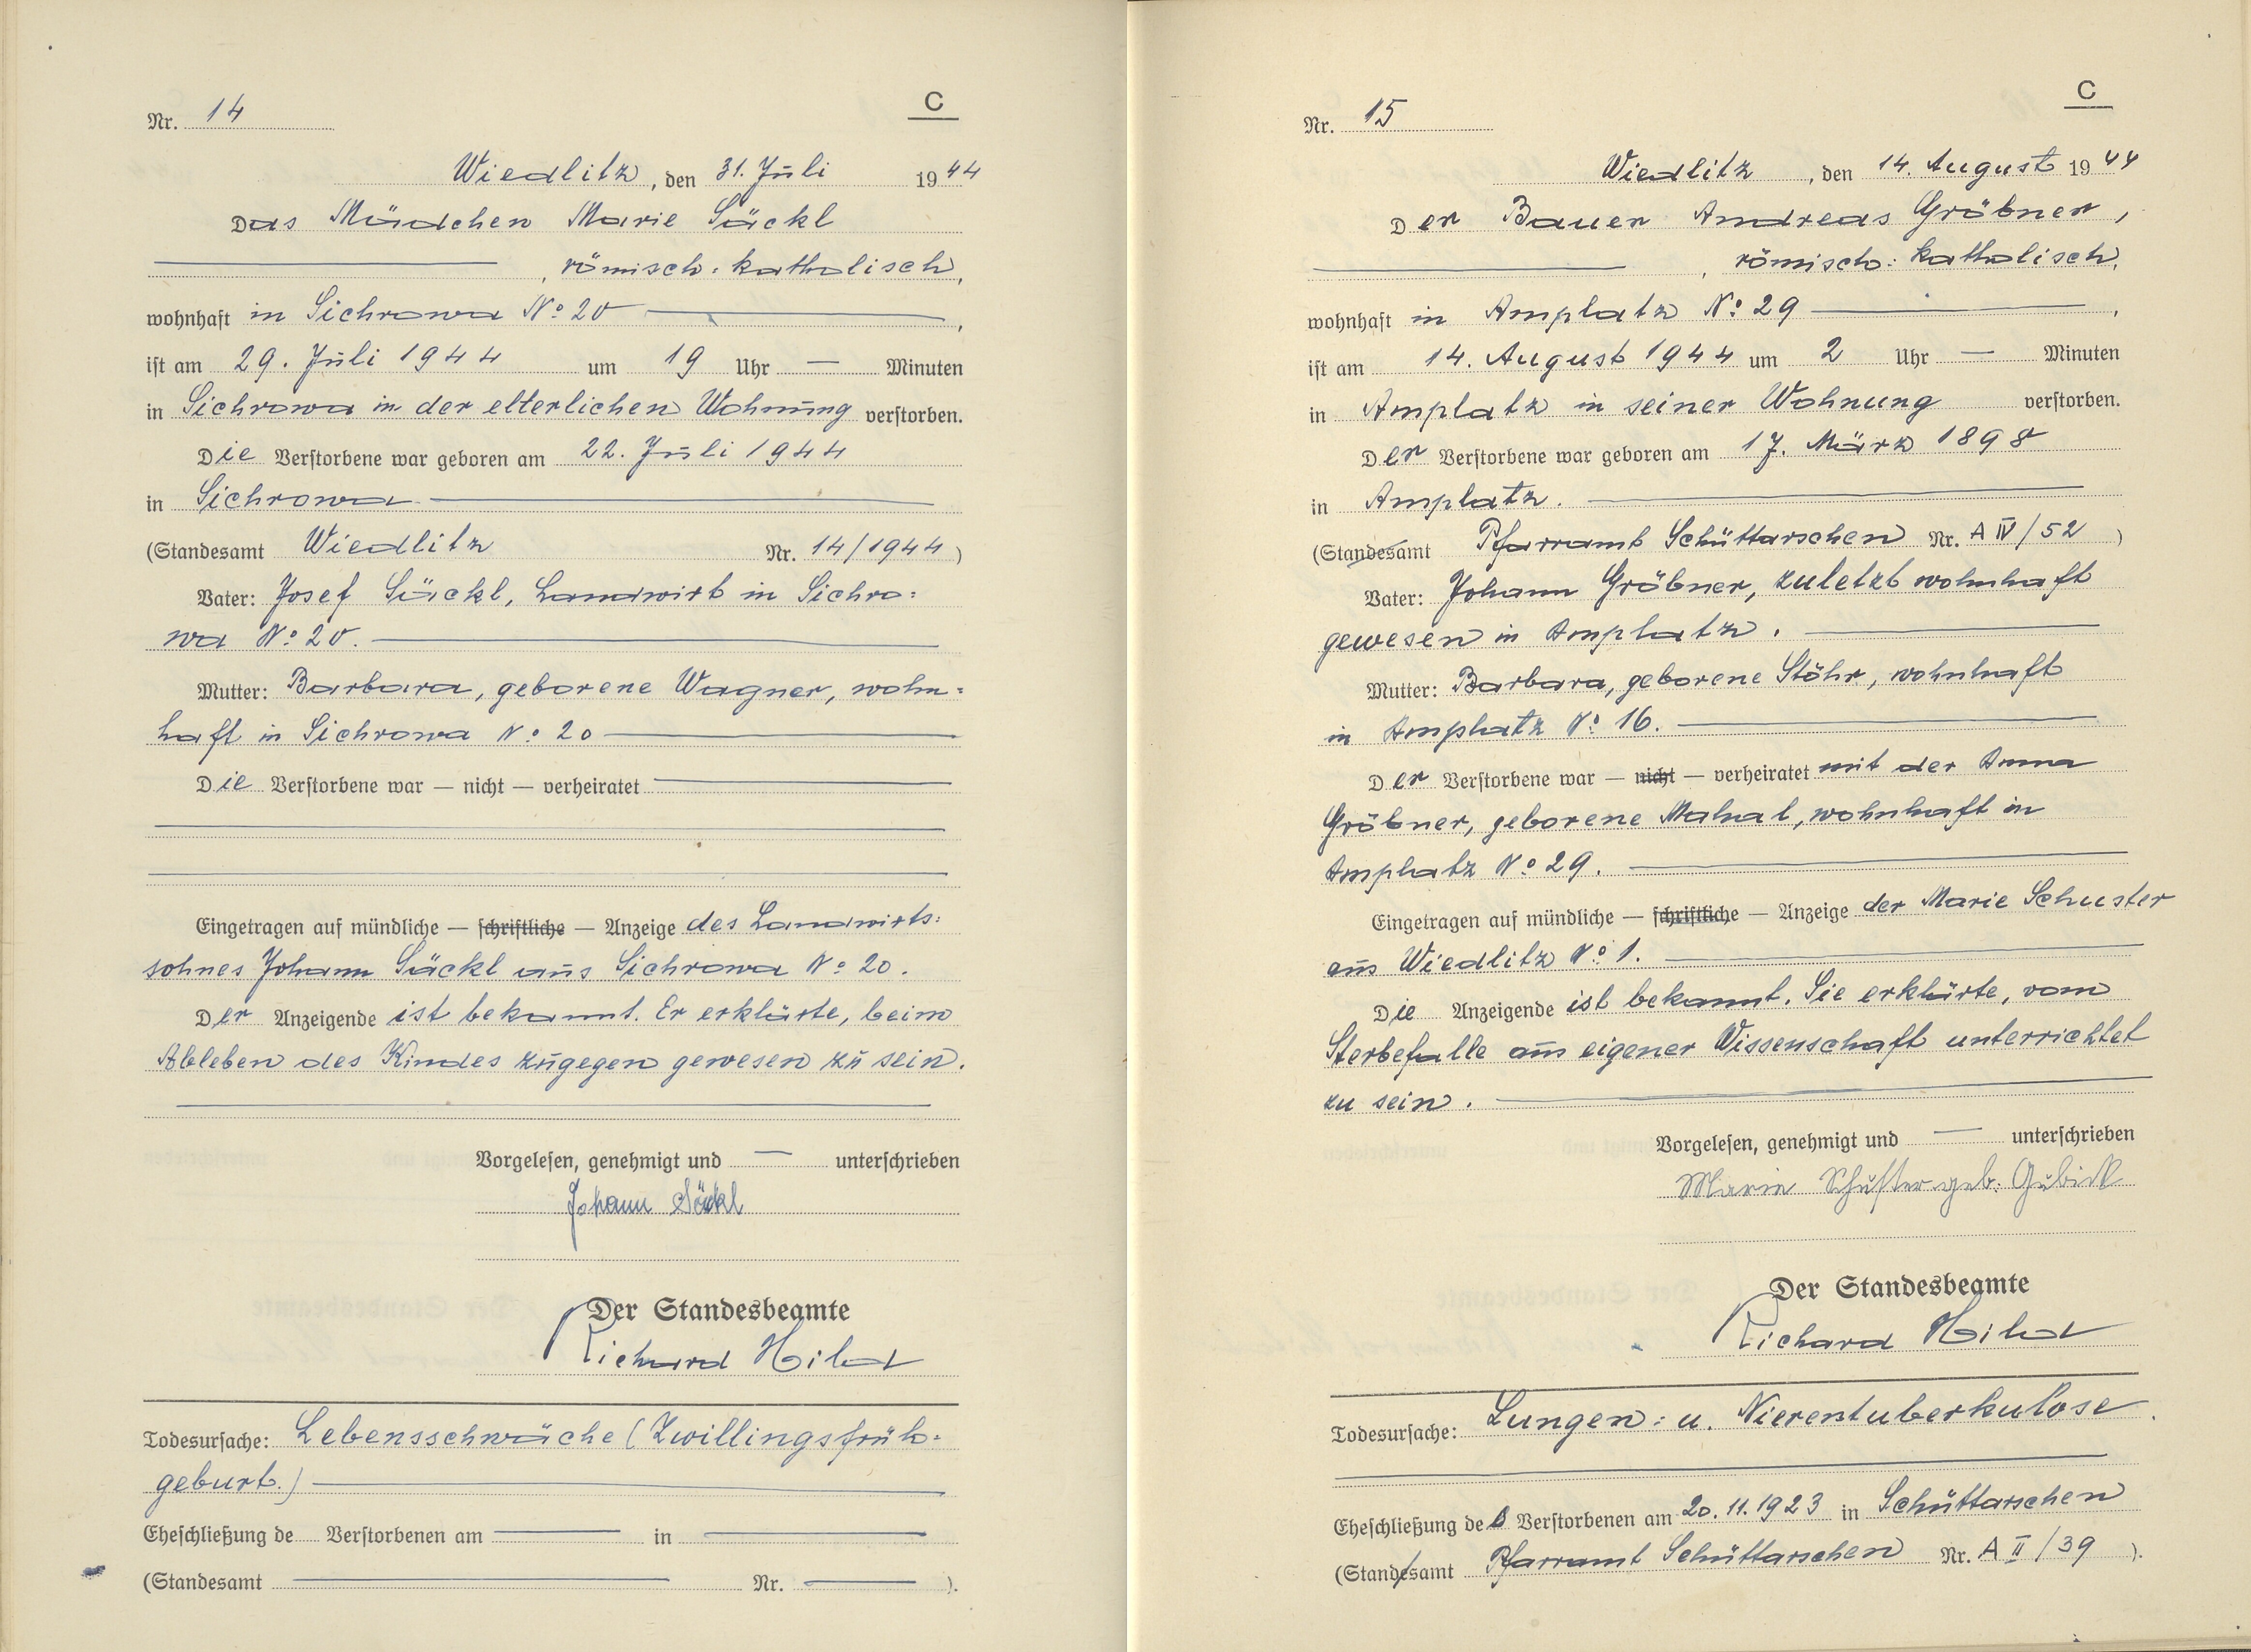 Nr. 14
C
Wiedlitz, den 31. Juli 1944
Das Mädchen Marie Säckl
, römisch-katholisch,
wohnhaft in Sichrowa No 20,
ist am 29. Juli 1944 um 19 Uhr — Minuten
in Sichrowa in der elterlichen Wohnung verstorben.
Die Verstorbene war geboren am 22. Juli 1944
in Sichrowa
(Standesamt Wiedlitz Nr. 14/1944)
Vater: Josef Säckl, Landwirt in Sichro-
wa No 20.
Mutter: Barbara, geborene Wagner, wohn-
haft in Sichrowa No 20
Die Verstorbene war — nicht — verheiratet
Eingetragen auf mündliche — schriftliche — Anzeige des Landwirts-
sohnes Johann Säckl aus Sichrowa No 20.
Der Anzeigende ist bekannt. Er erklärte, beim
Ableben des Kindes zugegen gewesen zu sein.
Vorgelesen, genehmigt und — unterschrieben
Johann Säckl
Der Standesbeamte
Richard Hilad
Todesursache: Lebensschwäche (Zwillingsfrüh-
geburt.)
Eheschließung de Verstorbenen am — in —
(Standesamt — Nr. — ).
Nr. 15
C
Wiedlitz, den 14. August 1944
Der Bauer Andreas Gröbner,
, römisch-katholisch,
wohnhaft in Amplatz No 29,
ist am 14. August 1944 um 2 Uhr — Minuten
in Amplatz in seiner Wohnung verstorben.
Der Verstorbene war geboren am 17. März 1898
in Amplatz.
(Standesamt Pfarramt Schüttarschen Nr. A IV/52)
Vater: Johann Gröbner, zuletzt wohnhaft
gewesen in Amplatz.
Mutter: Barbara, geborene Stöhr, wohnhaft
in Amplatz No 16.
Der Verstorbene war — nicht — verheiratet mit der Anna
Gröbner, geborene Mahal, wohnhaft in
Amplatz No 29.
Eingetragen auf mündliche — schriftliche — Anzeige der Marie Schuster
aus Wiedlitz No 1.
Die Anzeigende ist bekannt. Sie erklärte, vom
Sterbefalle aus eigener Wissenschaft unterrichtet
zu sein.
Vorgelesen, genehmigt und — unterschrieben
Marie Schuster geb.
Der Standesbeamte
Richard Hilad
Todesursache: Lungen- u. Nierentuberkulose.
Eheschließung des Verstorbenen am 20.11.1923 in Schüttarschen
(Standesamt Pfarramt Schüttarschen Nr. A II/39).